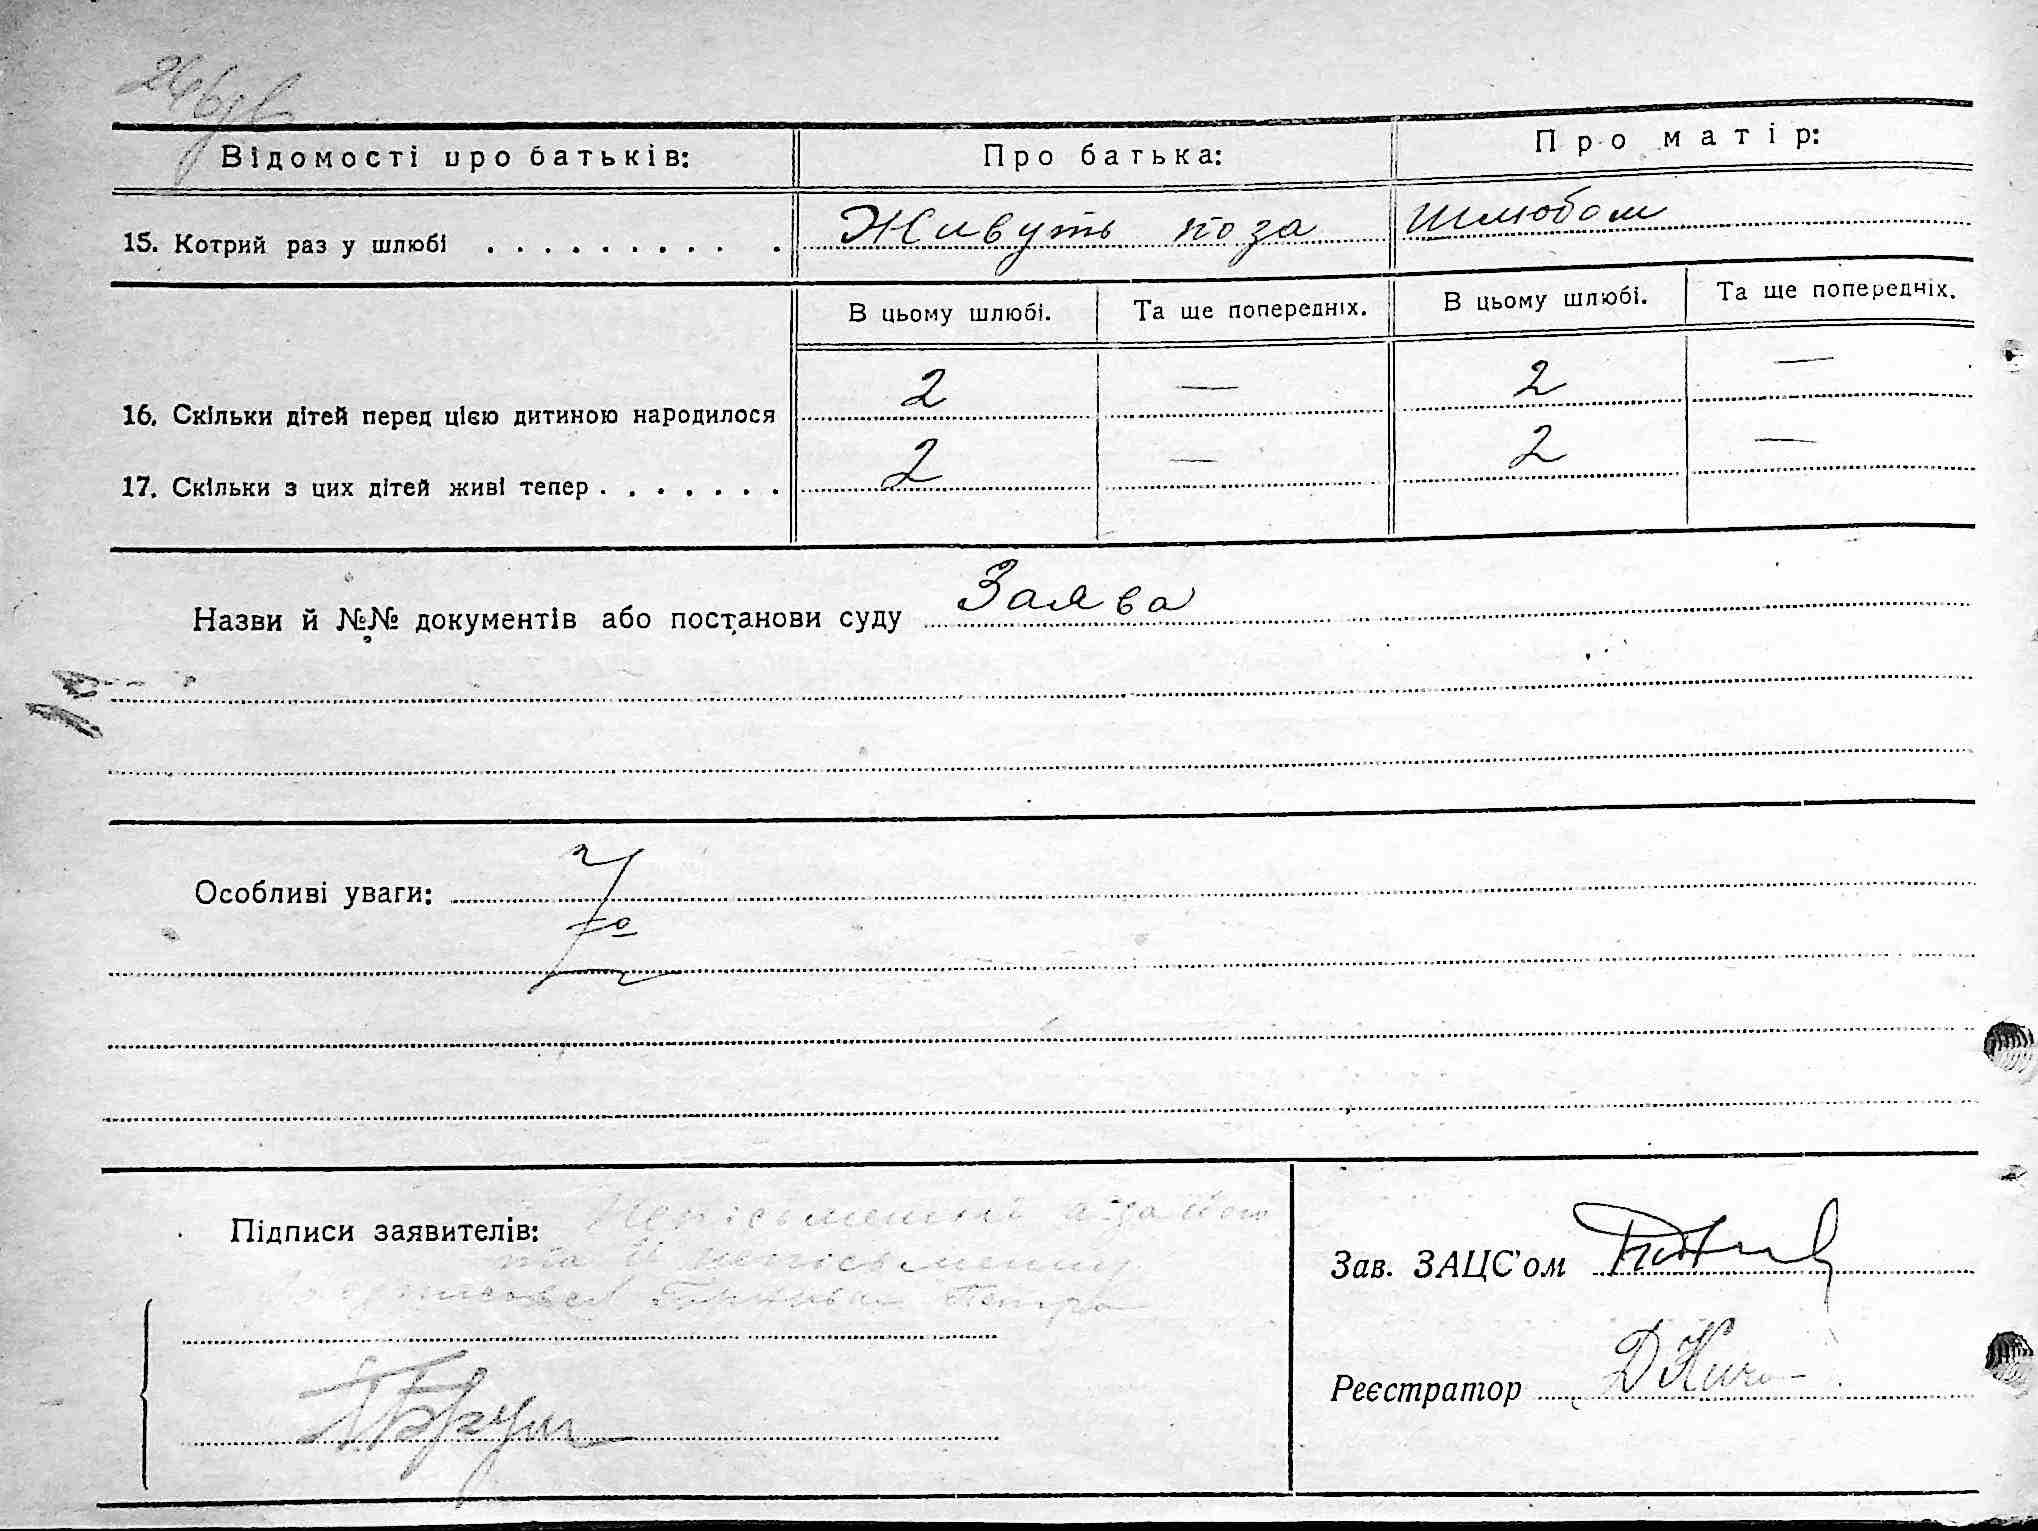 Відомості про батьків: Про батька: Про матір:
15. Котрий раз у шлюбі Живуть поза шлюбом
В цьому шлюбі. Та ще попередніх. В цьому шлюбі. Та ще попередніх.
16. Скільки дітей перед цією дитиною народилося 2 — 2 —
17. Скільки з цих дітей живі тепер 2 — 2 —
Назви й №№ документів або постанови суду Заява
Особливі уваги:
Підписи заявителів:
Зав. ЗАЦС'ом
Реєстратор